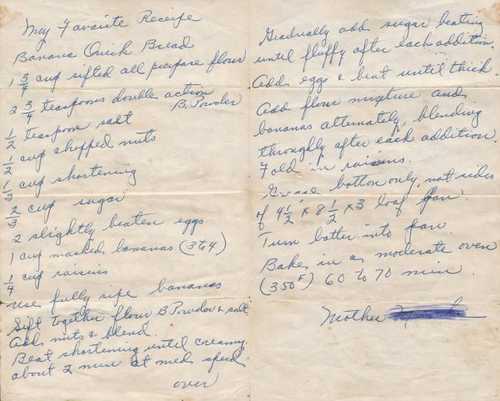 My Favorite Receipe
Banana Quick Bread
1 3/4 cup sifted all purpose flour
2 3/4 teaspoons double action
B. Powder
1/2 teaspoon salt
1/2 cup chopped nuts
1/3 cup shortening
2/3 cup sugar
2 slightly beaten eggs
1 cup mashed bananas (3&4)
1/4 cup raisins
Use fully ripe bananas
Sift together flour B. Powder & salt.
Add nuts & blend.
Beat shortening until creamy.
about 2 mins at med speed.
over
Gradually add sugar beating
until fluffy after each addition
Add eggs & beat until thick
Add flour mixture and
bananas alternately, blending
throughly after each addition.
Fold in raisins.
Grease bottom only, not sides
of 4 1/2 x 8 1/2 x 3 loaf pan.
Turn batter into pan.
Bake in a moderate oven
(350°F) 60 to 70 min.
Mother